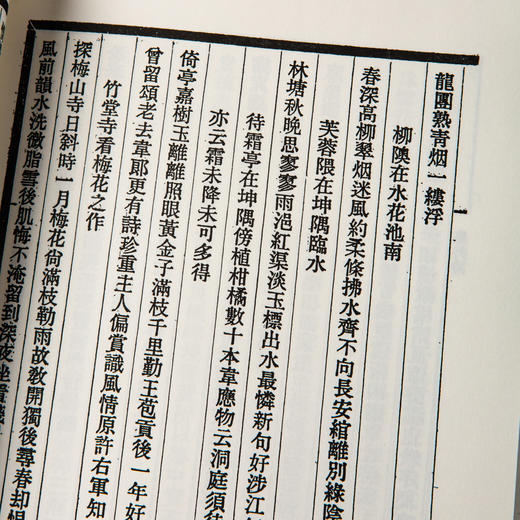 龍團熟青烟一縷浮
柳隩在水花池南
春深高柳翠烟迷風約柔條拂水齊不向長安綰離別綠陰
芙蓉隈在坤隅臨水
林塘秋晚思寥寥雨浥紅渠淡玉標出水最憐新句好涉江
待霜亭在坤隅傍植柑橘數十本韋應物云洞庭須待
亦云霜未降未可多得
倚亭嘉樹玉離離照眼黃金子滿枝千里勤王苞貢後一年好
曾留頌老去韋郎更有詩珍重主人偏賞識風情原許右軍知
竹堂寺看梅花之作
探梅山寺日斜時一月梅花尙滿枝勒雨故敎開獨後尋春却
風前韻水洗微脂雪後肌悔不淹留到深夜坐